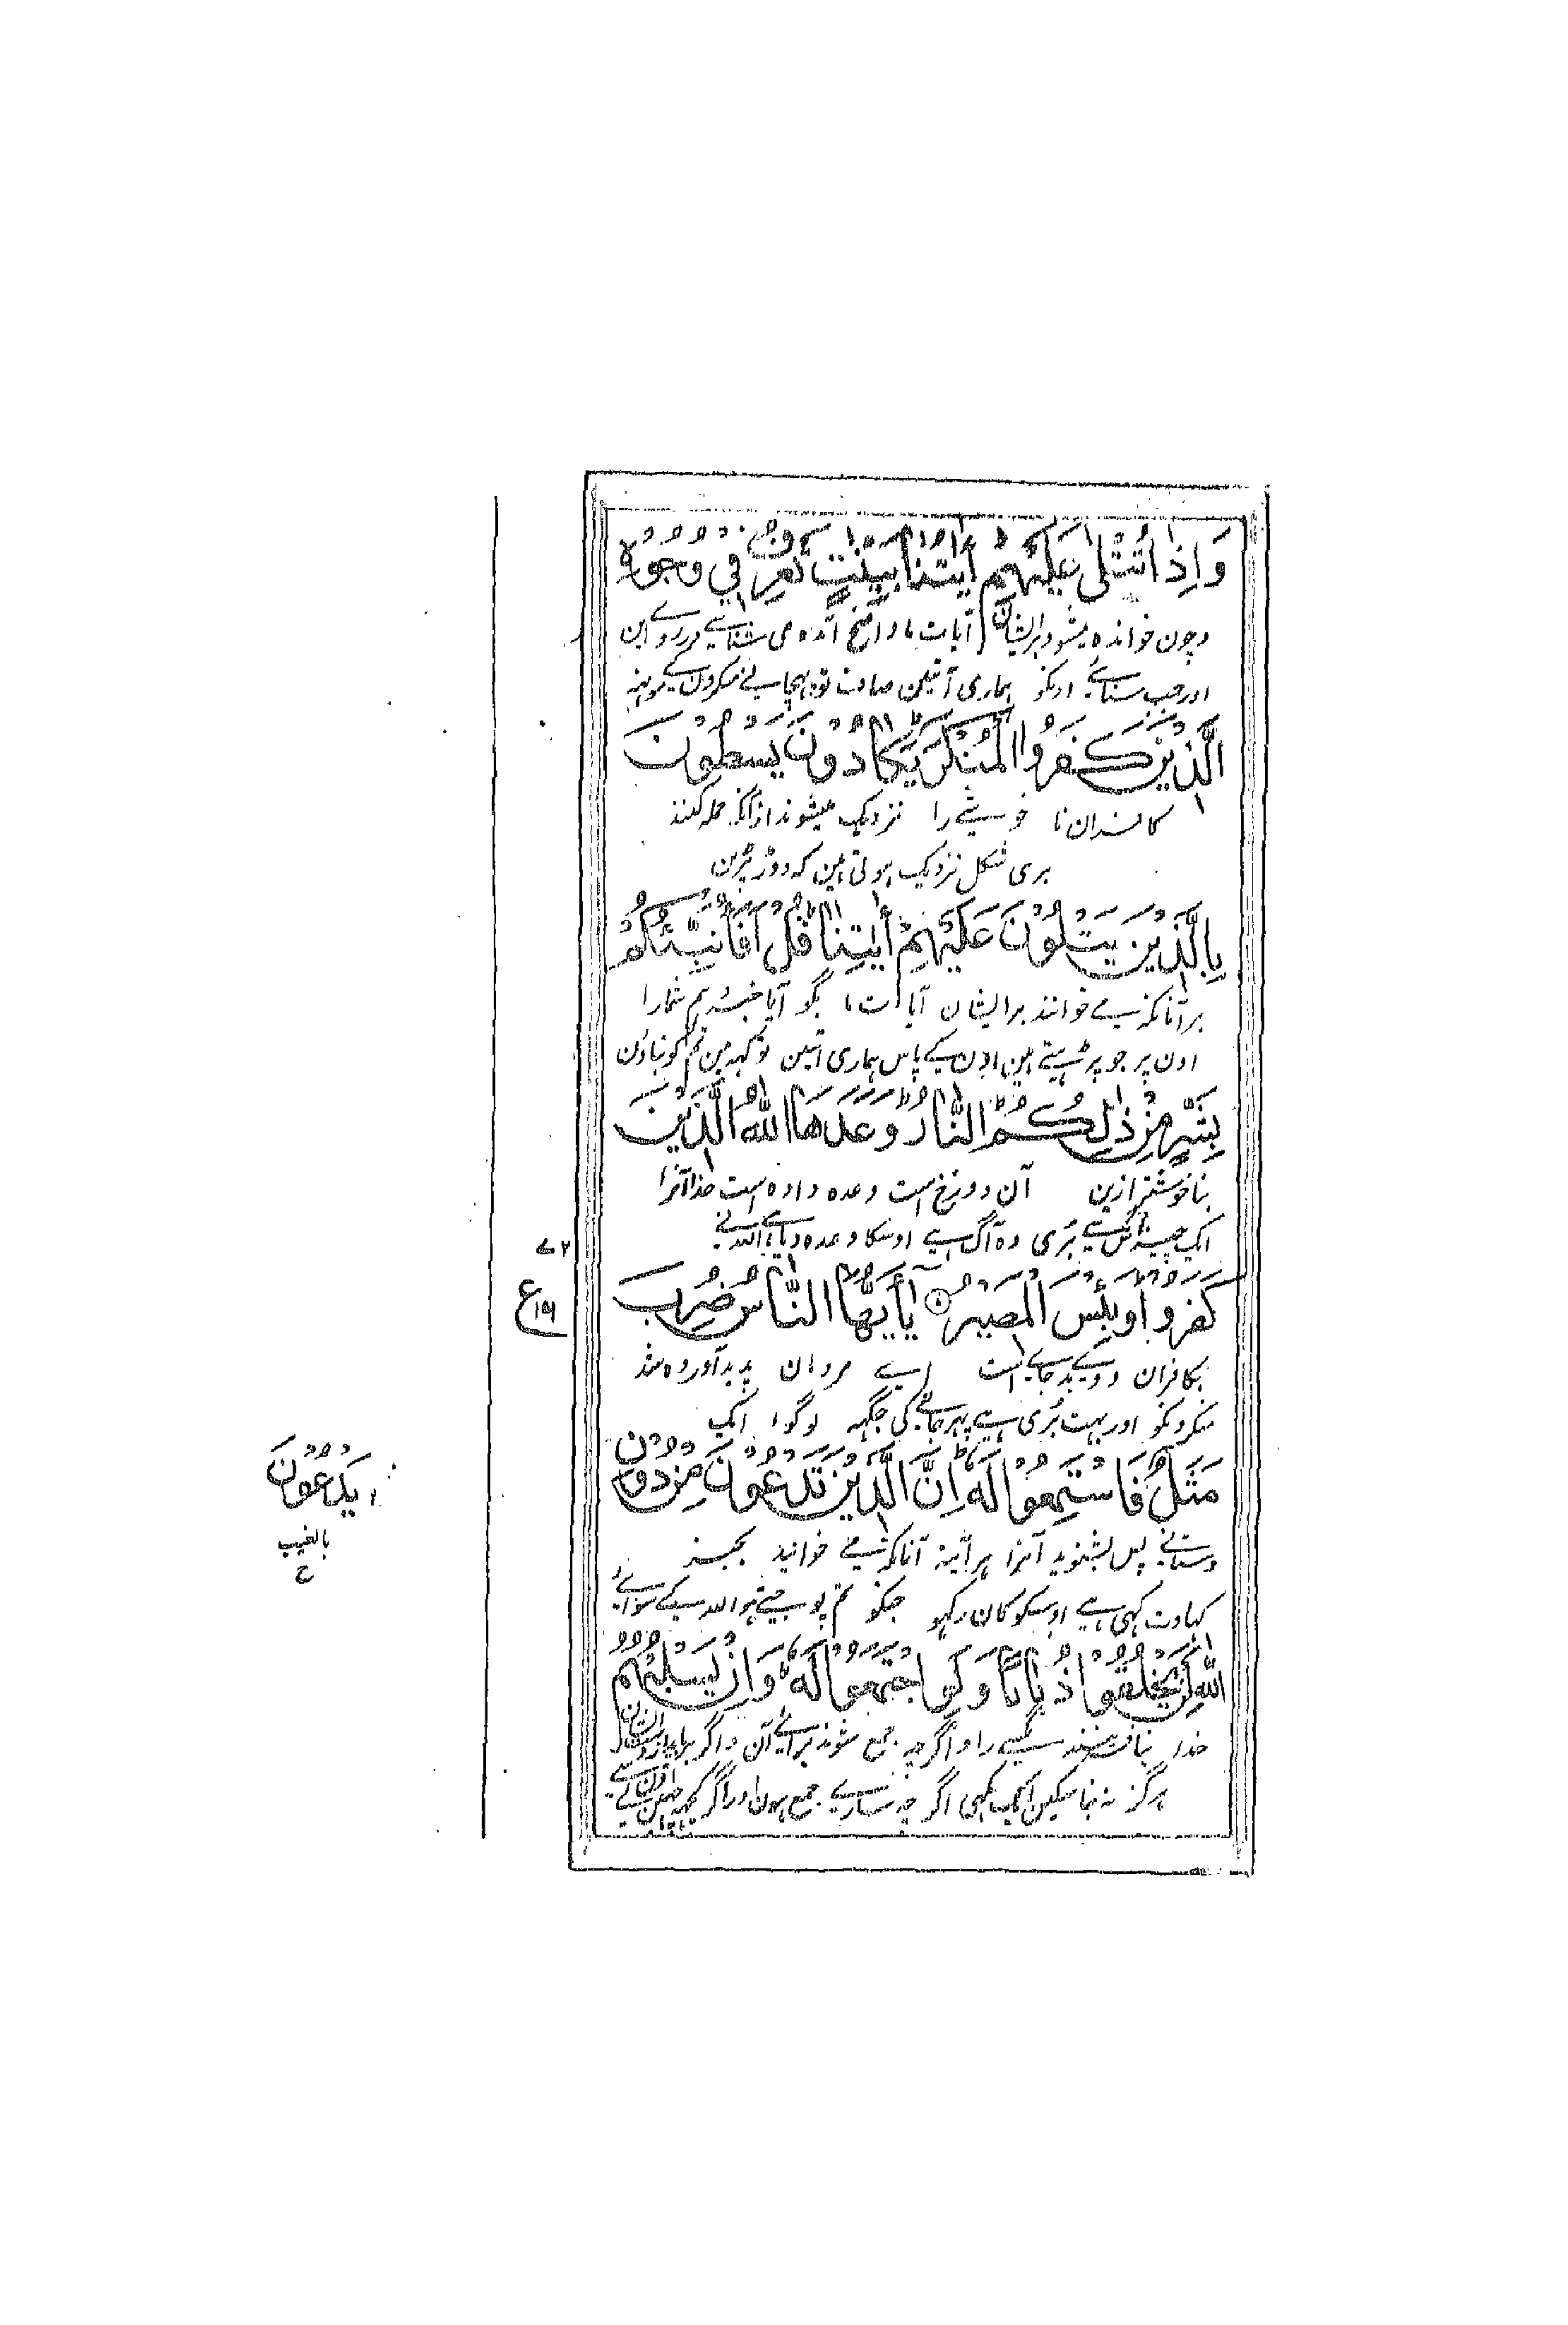 وَاِذَا تُتْلٰى عَلَيْهِمْ اٰيٰتُنَا بَيِّنٰتٍ تَعْرِفُ فِيْ وُجُوْهِ
وچون خوانده میشود بر ایشان آیات ما واضح آمده می شناسے در روے این
اور جب سنائے اونکو ہماری آیتین صاف تو پہچانے منکرون کے مونہہ
الَّذِيْنَ كَفَرُوا الْمُنْكَرَ يَكَادُوْنَ يَسْطُوْنَ
کافران نا خوشیے را نزدیک میشوند ازانکہ حملہ کنند
بری شکل نزدیک ہوتی ہین کہ دوڑ پڑین
بِالَّذِيْنَ يَتْلُوْنَ عَلَيْهِمْ اٰيٰتِنَا قُلْ اَفَاُنَبِّئُكُمْ
بر آنانکہ مے خوانند بر ایشان آیات ما بگو آیا خبر دہم شمارا
اون پر جو پڑہتے ہین اون کے پاس ہماری آتین تو کہہ مین تم کو بتاؤن
بِشَرٍّ مِّنْ ذٰلِكُمْ النَّارُ وَعَدَهَا اللّٰهُ الَّذِيْنَ
بنا خوشتر ازین آن دوزخ است وعدہ دادہ است خدا آنرا
ایک چیز اس سے بری وہ آگ ہے اوسکا وعدہ دیا ہے اللہ نے
٧٢
كَفَرُوْا وَبِئْسَ الْمَصِيْرُ يٰاَيُّهَا النَّاسُ ضُرِبَ
ع
بکافران و وے بد جاے است اے مردمان پدید آوردہ شد
منکرونکو اور بہت بُری ہے پہر جانے کی جگہہ لوگو ایک
مَثَلٌ فَاسْتَمِعُوْا لَهٗ اِنَّ الَّذِيْنَ تَدْعُوْنَ مِنْ دُوْنِ
يَدْعُوْنَ
بالغيب
ح
دستانے پس بشنوید آنرا ہر آئینہ آنانکہ مے خوانید بجز
کہاوت کہی ہے اوسکو کان رکہو جنکو تم پوجتے ہو اللہ کے سوائے
اللّٰهِ لَنْ يَّخْلُقُوْا ذُبَابًا وَّلَوِ اجْتَمَعُوْا لَهٗ وَاِنْ يَّسْلُبْهُمُ
خدا نیافرینند مگسے را و اگرچہ جمع شوند برائے آن و اگر برباید از ایشان
ہرگز نہ بنا سکین ایک مکہی اگرچہ سارے جمع ہون اور اگر کچہہ چہین لے اون سے